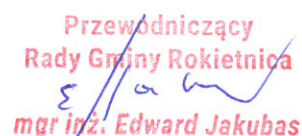 Przewodniczący
Rady Gminy Rokietnica
mgr inż. Edward Jakubas